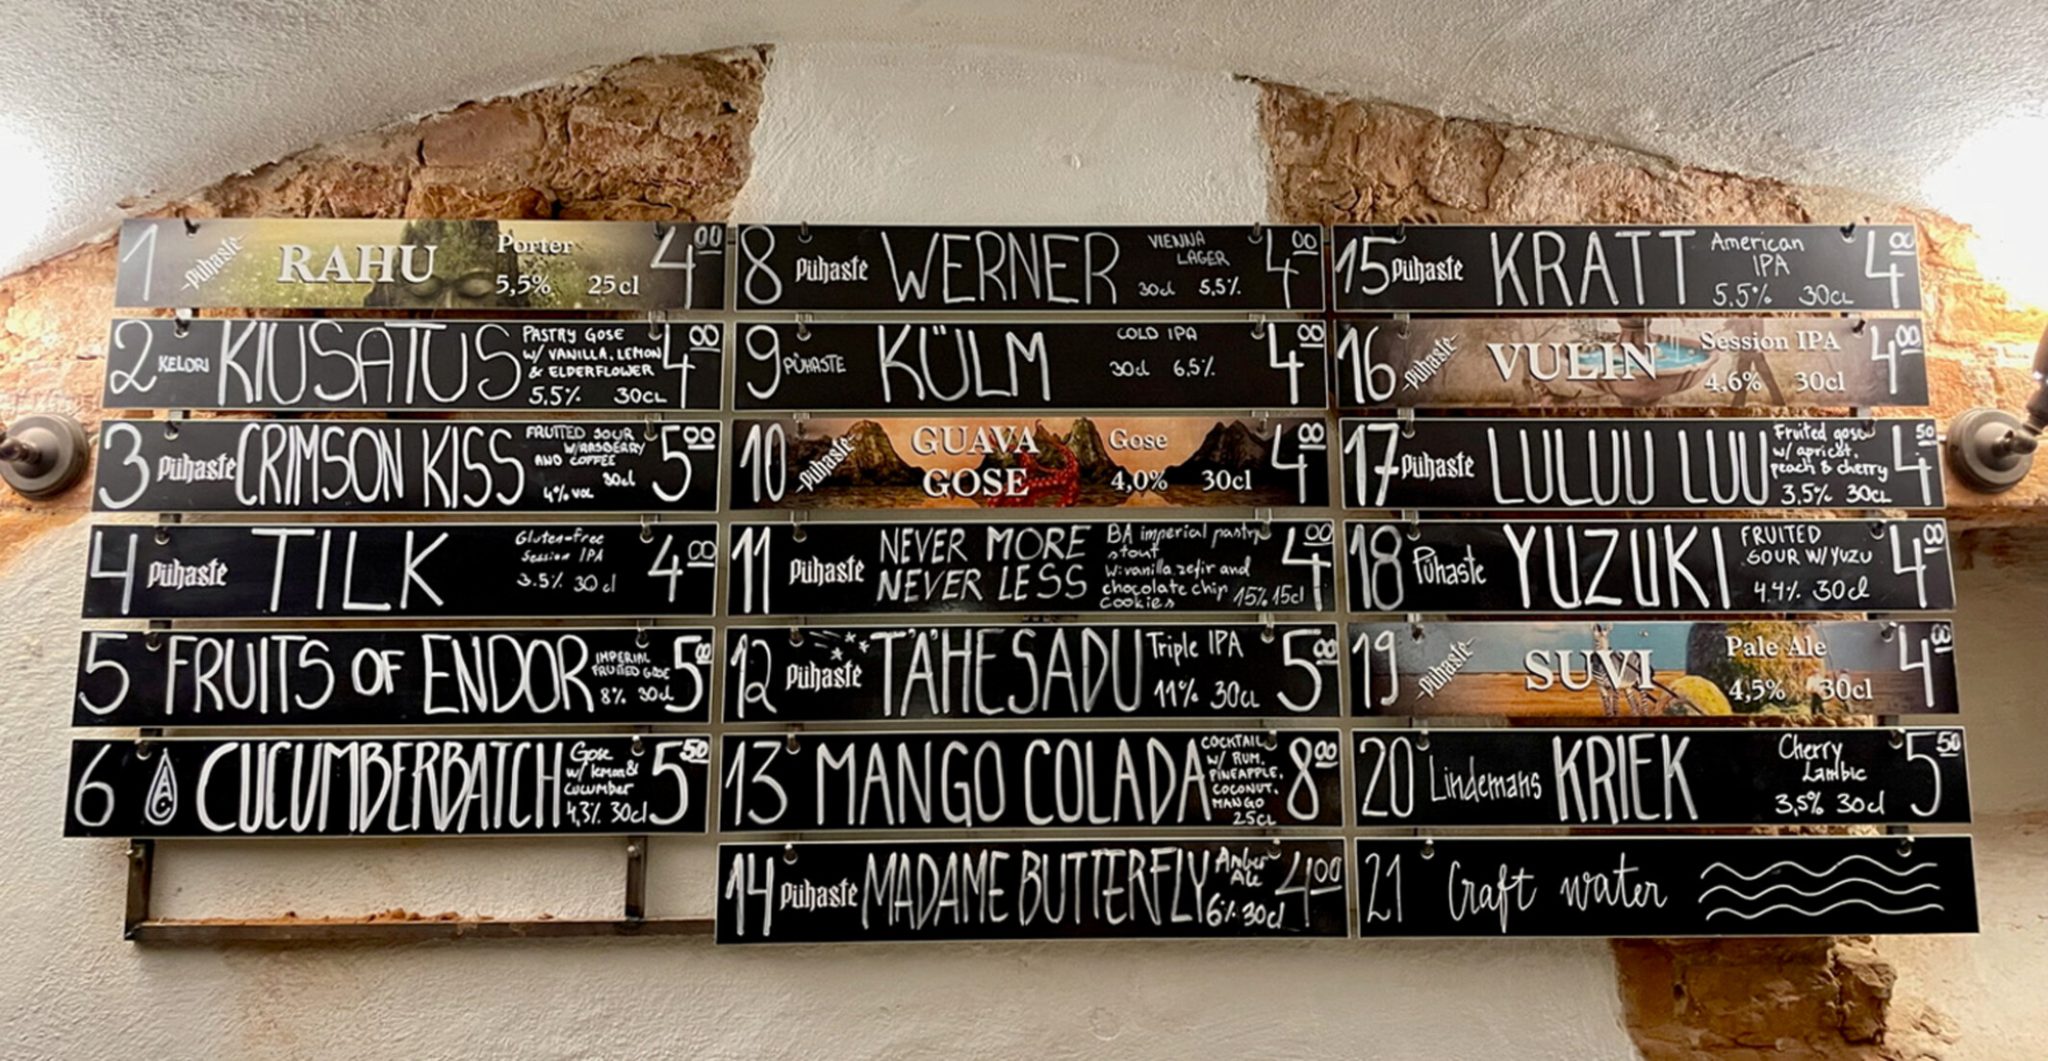 1 Pühaste RAHU Porter 4.00
5,5% 25cl
2 KELORI KIUSATUS PASTRY GOSE 4.00
W/ VANILLA, LEMON
& ELDERFLOWER
5.5% 30CL
3 Pühaste CRIMSON KISS FRUITED SOUR 5.00
W/RASBERRY
AND COFFEE
4% VOL 30cl
4 Pühaste TILK Gluten-free 4.00
Session IPA
3.5% 30cl
5 FRUITS OF ENDOR IMPERIAL 5.00
FRUITED GOSE
8% 30cl
6 CUCUMBERBATCH Gose 5.50
w/ lemon &
cucumber
4,3% 30cl
8 Pühaste WERNER VIENNA 4.00
LAGER
30cl 5,5%
9 PÜHASTE KÜLM COLD IPA 4.00
30cl 6,5%
10 Pühaste GUAVA Gose 4.00
GOSE 4,0% 30cl
11 Pühaste NEVER MORE BA imperial pastry 4.00
NEVER LESS stout
w: vanilla, zefir and
chocolate chip
cookies 15% 15cl
12 Pühaste TÄHESADU Triple IPA 5.00
11% 30CL
13 MANGO COLADA COCKTAIL 8.00
W/ RUM,
PINEAPPLE,
COCONUT,
MANGO
25CL
14 Pühaste MADAME BUTTERFLY Amber 4.00
Ale
6% 30cl
15 Pühaste KRATT American 4.00
IPA
5.5% 30CL
16 Pühaste VULIN Session IPA 4.00
4,6% 30cl
17 Pühaste LULUU LUU Fruited gose 4.50
w/ apricot,
peach & cherry
3,5% 30CL
18 Pühaste YUZUKI FRUITED 4.00
SOUR W/YUZU
4.4% 30cl
19 Pühaste SUVI Pale Ale 4.00
4,5% 30cl
20 Lindemans KRIEK Cherry 5.50
Lambic
3,5% 30cl
21 Craft water